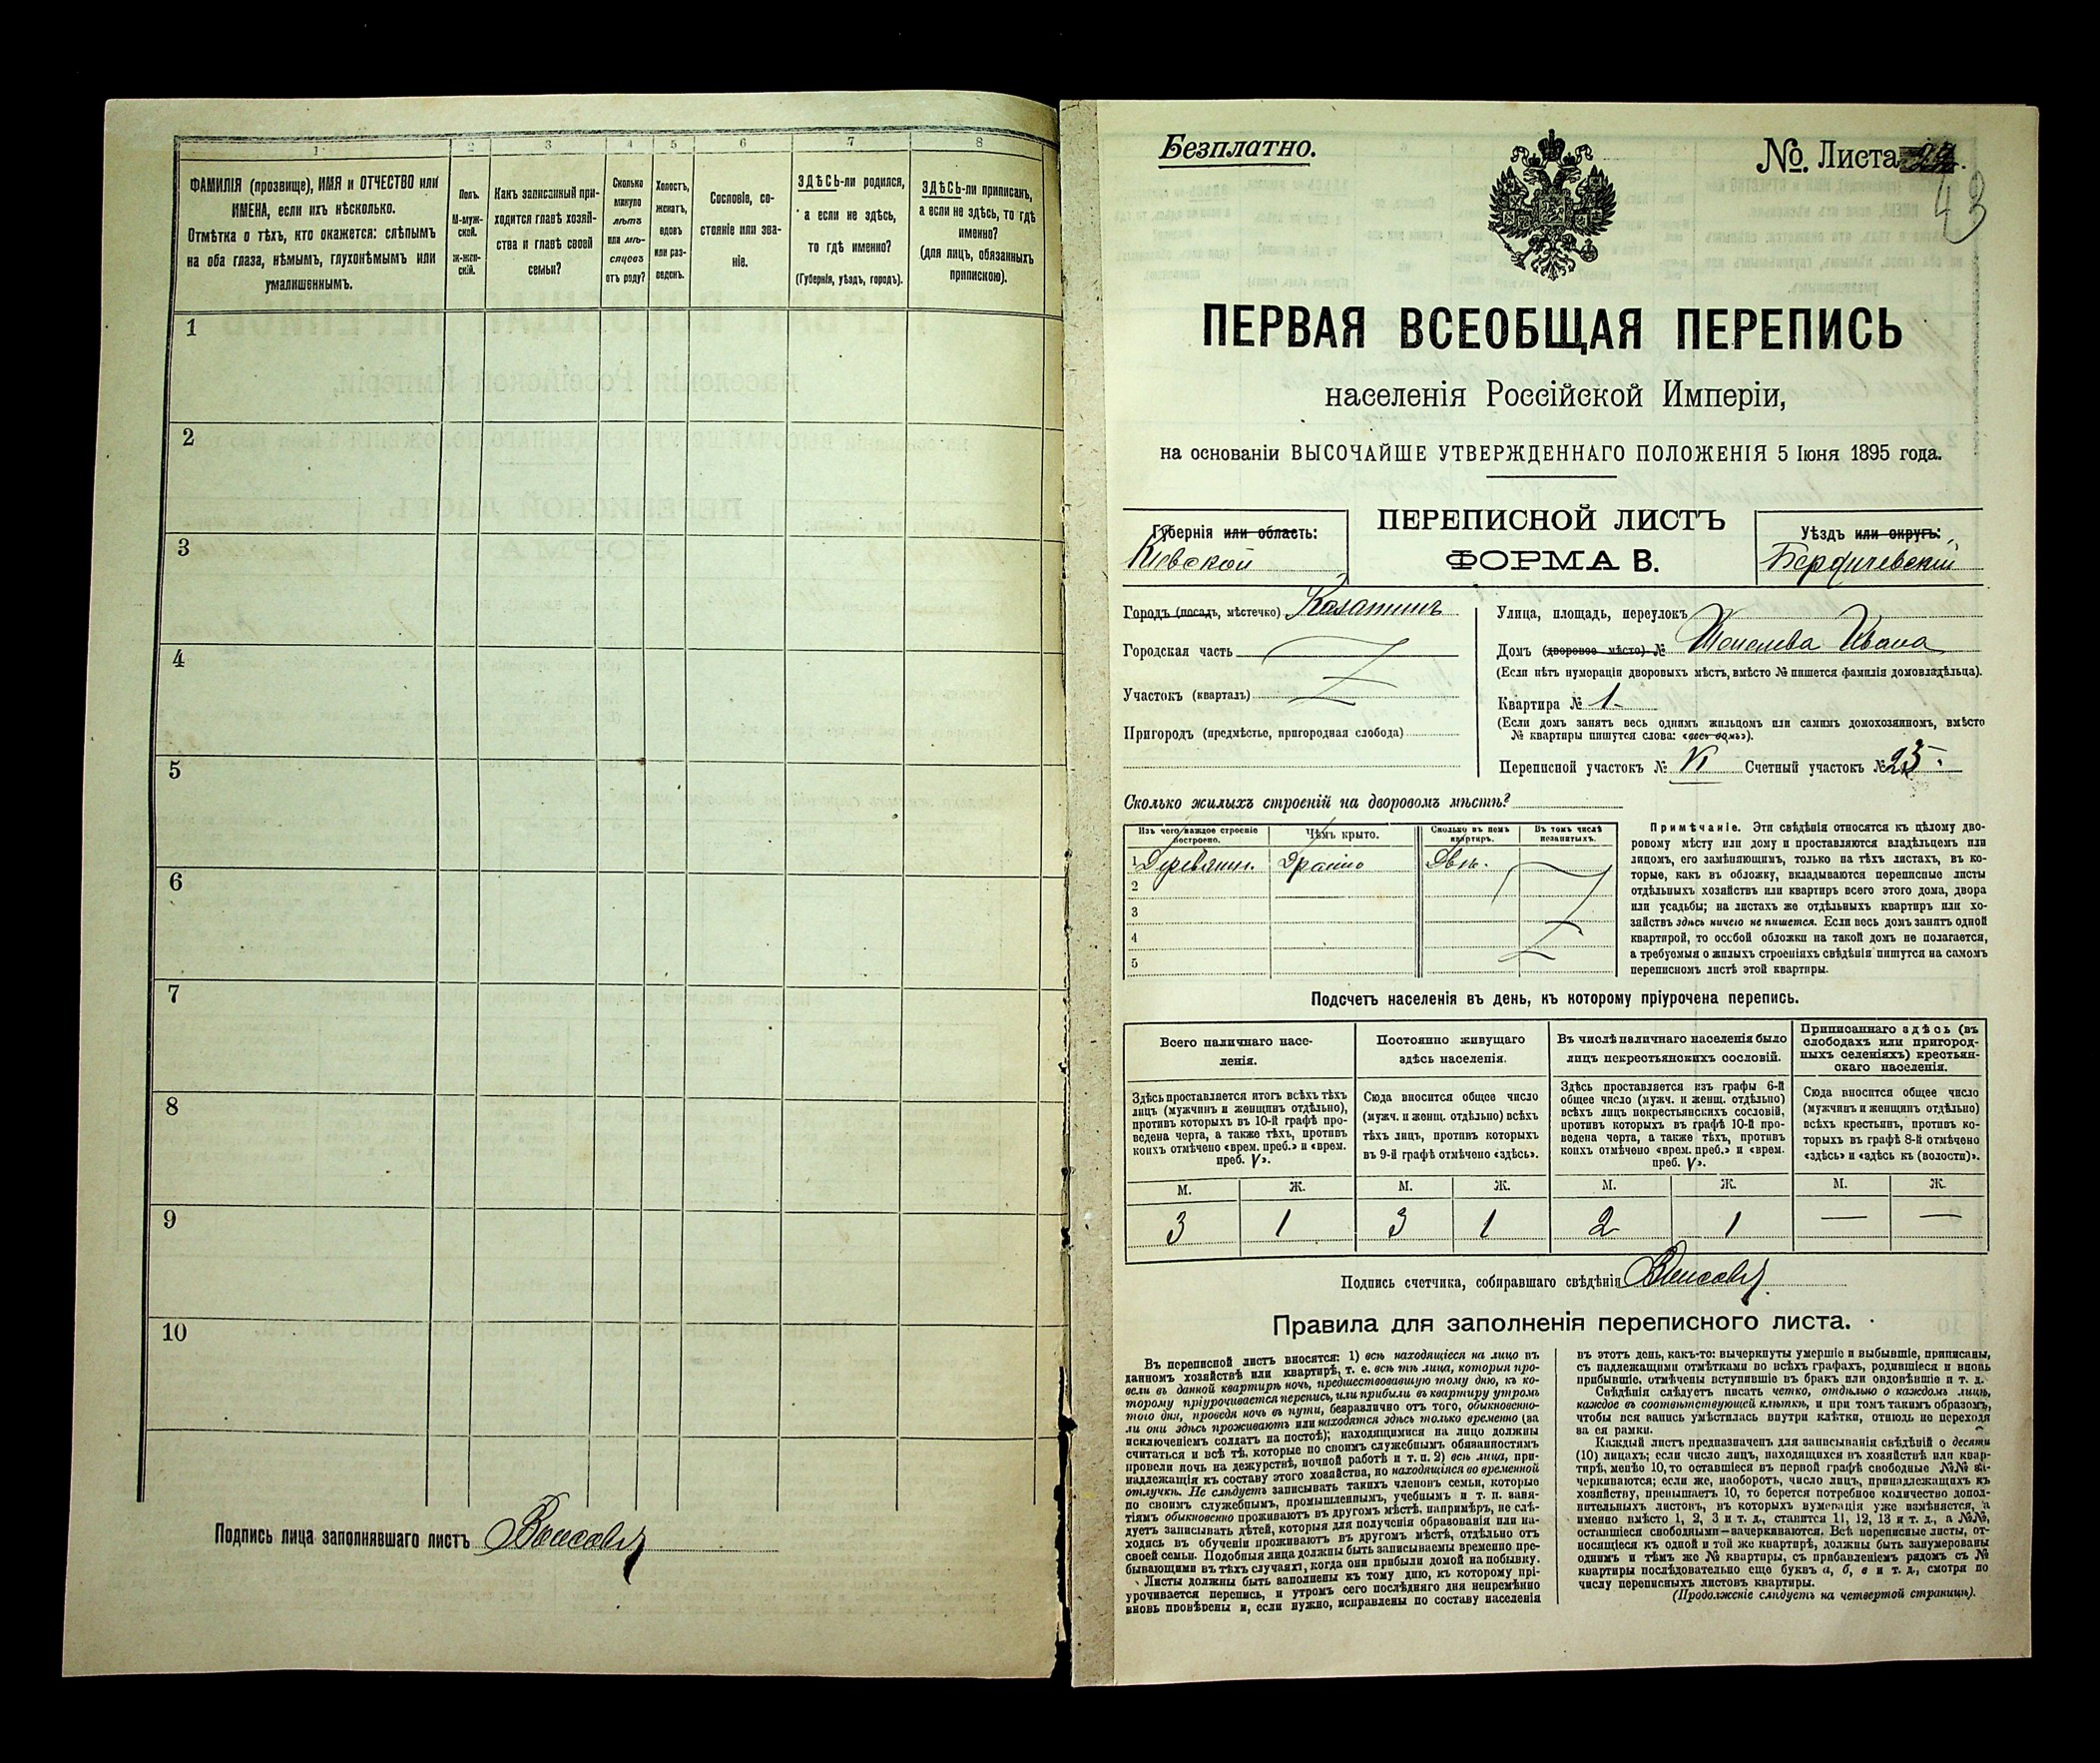 1
2
3
4
5
6
7
8
ФАМИЛІЯ (прозвище), ИМЯ и ОТЧЕСТВО или
ИМЕНА, если ихъ нѣсколько.
Отмѣтка о тѣхъ, кто окажется: слѣпымъ
на оба глаза, нѣмымъ, глухонѣмымъ или
умалишеннымъ.
Полъ.
М-муж-
ской.
Ж-жен-
скій.
Какъ записанный при-
ходится главѣ хозяй-
ства и главѣ своей
семьи?
Сколько
минуло
лѣтъ
или мѣ-
сяцевъ
отъ роду?
Холостъ,
женатъ,
вдовъ
или раз-
веденъ.
Сословіе, со-
стояніе или зва-
ніе.
ЗДѢСЬ-ли родился,
а если не здѣсь,
то гдѣ именно?
(Губернія, уѣздъ, городъ).
ЗДѢСЬ-ли приписанъ,
а если не здѣсь, то гдѣ
именно?
(для лицъ, обязанныхъ
припискою).
1
2
3
4
5
6
7
8
9
10
Подпись лица заполнявшаго листъ
Безплатно.
№. Листа
43
ПЕРВАЯ ВСЕОБЩАЯ ПЕРЕПИСЬ
населенія Россійской Имперіи,
на основаніи ВЫСОЧАЙШЕ УТВЕРЖДЕННАГО ПОЛОЖЕНІЯ 5 Іюня 1895 года.
Губернія или область:
Кіевской
ПЕРЕПИСНОЙ ЛИСТЪ
ФОРМА В.
Уѣздъ или округъ:
Бердичевскій
Городъ (посадъ, мѣстечко) Казатинъ
Городская часть
Участокъ (кварталъ)
Пригородъ (предмѣстье, пригородная слобода)
Улица, площадь, переулокъ
Домъ (дворовое мѣсто) № Ивана
(Если нѣтъ нумораціи дворовыхъ мѣстъ, вмѣсто № пишется фамилія домовладѣльца).
Квартира № 1
(Если домъ занятъ весь однимъ жильцомъ или самимъ домохозяиномъ, вмѣсто
№ квартиры пишутся слова: «весь домъ»).
Переписной участокъ № VI Счетный участокъ № 23.
Сколько жилыхъ строеній на дворовомъ мѣстѣ?
Изъ чего каждое строеніе построено.
Чѣмъ крыто.
Сколько въ немъ квартиръ.
Въ томъ числѣ незанятыхъ.
1 Деревянн. Дранью Двѣ.
2
3
4
5
Примѣчаніе. Эти свѣдѣнія относятся къ цѣлому дво-
ровому мѣсту или дому и проставляются владѣльцемъ или
лицомъ, его замѣняющимъ, только на тѣхъ листахъ, въ ко-
торые, какъ въ обложку, вкладываются переписные листы
отдѣльныхъ хозяйствъ или квартиръ всего этого дома, двора
или усадьбы; на листахъ же отдѣльныхъ квартиръ или хо-
зяйствъ здѣсь ничего не пишется. Если весь домъ занятъ одной
квартирой, то особой обложки на такой домъ не полагается,
а требуемыя о жилыхъ строеніяхъ свѣдѣнія пишутся на самомъ
переписномъ листѣ этой квартиры.
Подсчетъ населенія въ день, къ которому пріурочена перепись.
Всего наличнаго насе-
ленія.
Здѣсь проставляется итогъ всѣхъ тѣхъ
лицъ (мужчинъ и женщинъ отдѣльно),
противъ которыхъ въ 10-й графѣ про-
ведена черта, а также тѣхъ, противъ
коихъ отмѣчено «врем. преб.» и «врем.
преб. V».
Постоянно живущаго
здѣсь населенія.
Сюда вносится общее число
(мужч. и женщ. отдѣльно) всѣхъ
тѣхъ лицъ, противъ которыхъ
въ 9-й графѣ отмѣчено «здѣсь».
Въ числѣ наличнаго населенія было
лицъ некрестьянскихъ сословій.
Здѣсь проставляется изъ графы 6-й
общее число (мужч. и женщ. отдѣльно)
всѣхъ лицъ некрестьянскихъ сословій,
противъ которыхъ въ графѣ 10-й про-
ведена черта, а также тѣхъ, противъ
коихъ отмѣчено «врем. преб.» и «врем.
преб. V».
Приписаннаго здѣсь (въ
слободахъ или пригород-
ныхъ селеніяхъ) крестьян-
скаго населенія.
Сюда вносится общее число
(мужчинъ и женщинъ отдѣльно)
всѣхъ крестьянъ, противъ ко-
торыхъ въ графѣ 8-й отмѣчено
«здѣсь» и «здѣсь къ (волости)».
М. Ж. М. Ж. М. Ж. М. Ж.
3 1 3 1 2 1 — —
Подпись счетчика, собиравшаго свѣдѣнія
Правила для заполненія переписного листа.
Въ переписной листъ вносятся: 1) всѣ находящіеся на лицо въ
данномъ хозяйствѣ или квартирѣ, т. е. всѣ тѣ лица, которыя про-
вели въ данной квартирѣ ночь, предшествовавшую тому дню, къ ко-
торому пріурочивается перепись, или прибыли въ квартиру утромъ
того дня, проведя ночь въ пути, безразлично отъ того, обыкновенно-
ли они здѣсь проживаютъ или находятся здѣсь только временно (за
исключеніемъ солдатъ на постоѣ); находящимися на лицо должны
считаться и всѣ тѣ, которые по своимъ служебнымъ обязанностямъ
провели ночь на дежурствѣ, ночной работѣ и т. п. 2) всѣ лица, при-
надлежащія къ составу этого хозяйства, но находящіяся во временной
отлучкѣ. Не слѣдуетъ записывать такихъ членовъ семьи, которые
по своимъ служебнымъ, промышленнымъ, учебнымъ и т. п. заня-
тіямъ обыкновенно проживаютъ въ другомъ мѣстѣ, напримѣръ, не слѣ-
дуетъ записывать дѣтей, которыя для полученія образованія или на-
ходясь въ обученіи проживаютъ въ другомъ мѣстѣ, отдѣльно отъ
своей семьи. Подобныя лица должны быть записываемы временно пре-
бывающими въ тѣхъ случаяхъ, когда они прибыли домой на побывку.
Листы должны быть заполнены къ тому дню, къ которому прі-
урочивается перепись, и утромъ сего послѣдняго дня непремѣнно
вновь провѣрены и, если нужно, исправлены по составу населенія
въ этотъ день, какъ-то: вычеркнуты умершіе и выбывшіе, приписаны,
съ надлежащими отмѣтками во всѣхъ графахъ, родившіеся и вновь
прибывшіе, отмѣчены вступившіе въ бракъ или овдовѣвшіе и т. д.
Свѣдѣнія слѣдуетъ писать четко, отдѣльно о каждомъ лицѣ,
каждое въ соотвѣтствующей клѣткѣ, и при томъ такимъ образомъ,
чтобы вся запись умѣстилась внутри клѣтки, отнюдь не переходя
за ея рамки.
Каждый листъ предназначенъ для записыванія свѣдѣній о десяти
(10) лицахъ; если число лицъ, находящихся въ хозяйствѣ или квар-
тирѣ, менѣе 10, то оставшіеся въ первой графѣ свободные №№ за-
черкиваются; если же, наоборотъ, число лицъ, принадлежащихъ къ
хозяйству, превышаетъ 10, то берется потребное количество допол-
нительныхъ листовъ, въ которыхъ нумерація уже измѣняется, а
именно вмѣсто 1, 2, 3 и т. д., ставится 11, 12, 13 и т. д., а №№,
оставшіеся свободными—зачеркиваются. Всѣ переписные листы, от-
носящіеся къ одной и той же квартирѣ, должны быть занумерованы
однимъ и тѣмъ же № квартиры, съ прибавленіемъ рядомъ съ №
квартиры послѣдовательно еще буквъ а, б, в и т. д., смотря по
числу переписныхъ листовъ квартиры.
(Продолженіе слѣдуетъ на четвертой страницѣ).